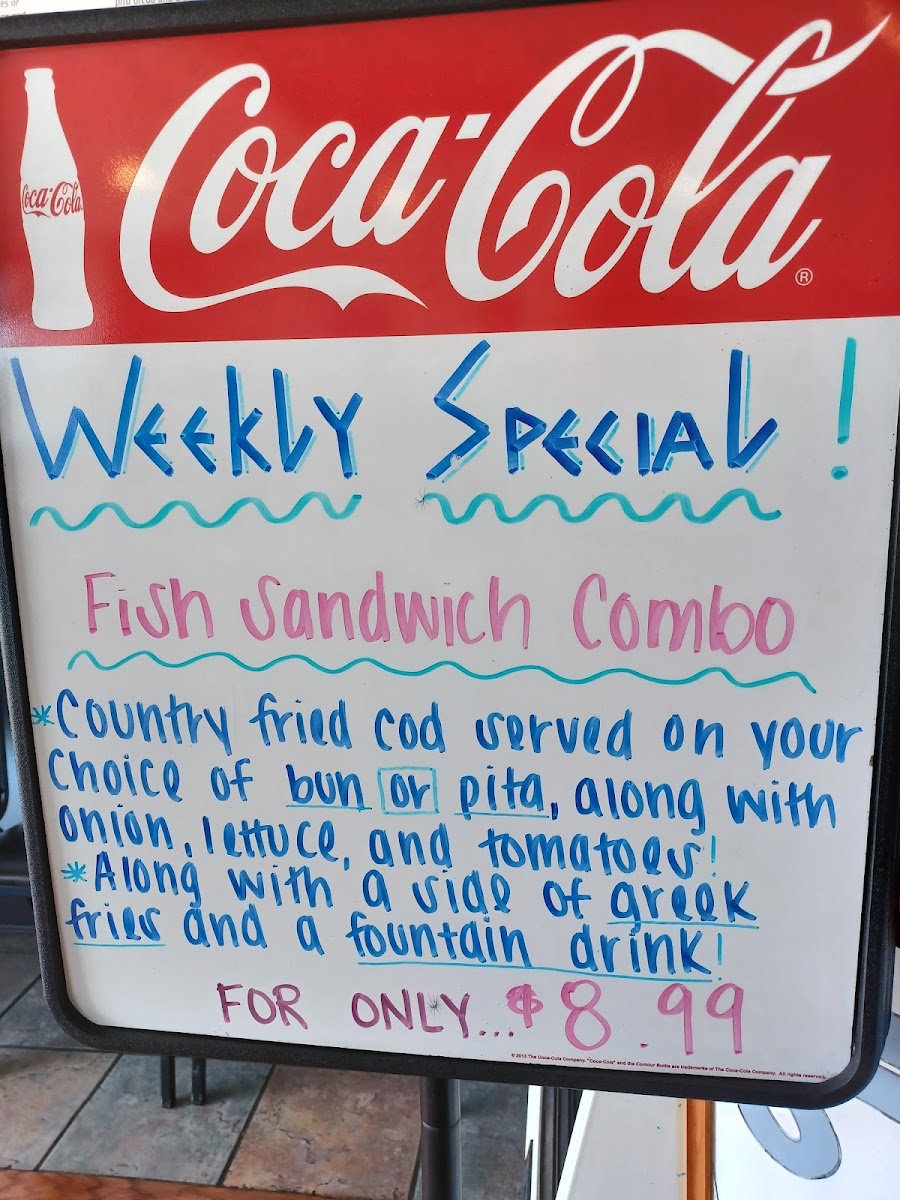 pita bread and
Coca-Cola
Coca-Cola®
WEEKLY SPECIAL!
Fish Sandwich Combo
*Country fried cod served on your
choice of bun or pita, along with
onion, lettuce, and tomatoes!
*Along with a side of greek
fries and a fountain drink!
FOR ONLY...$8.99
© 2013 The Coca-Cola Company. "Coca-Cola" and the Contour Bottle are trademarks of The Coca-Cola Company. All rights reserved.